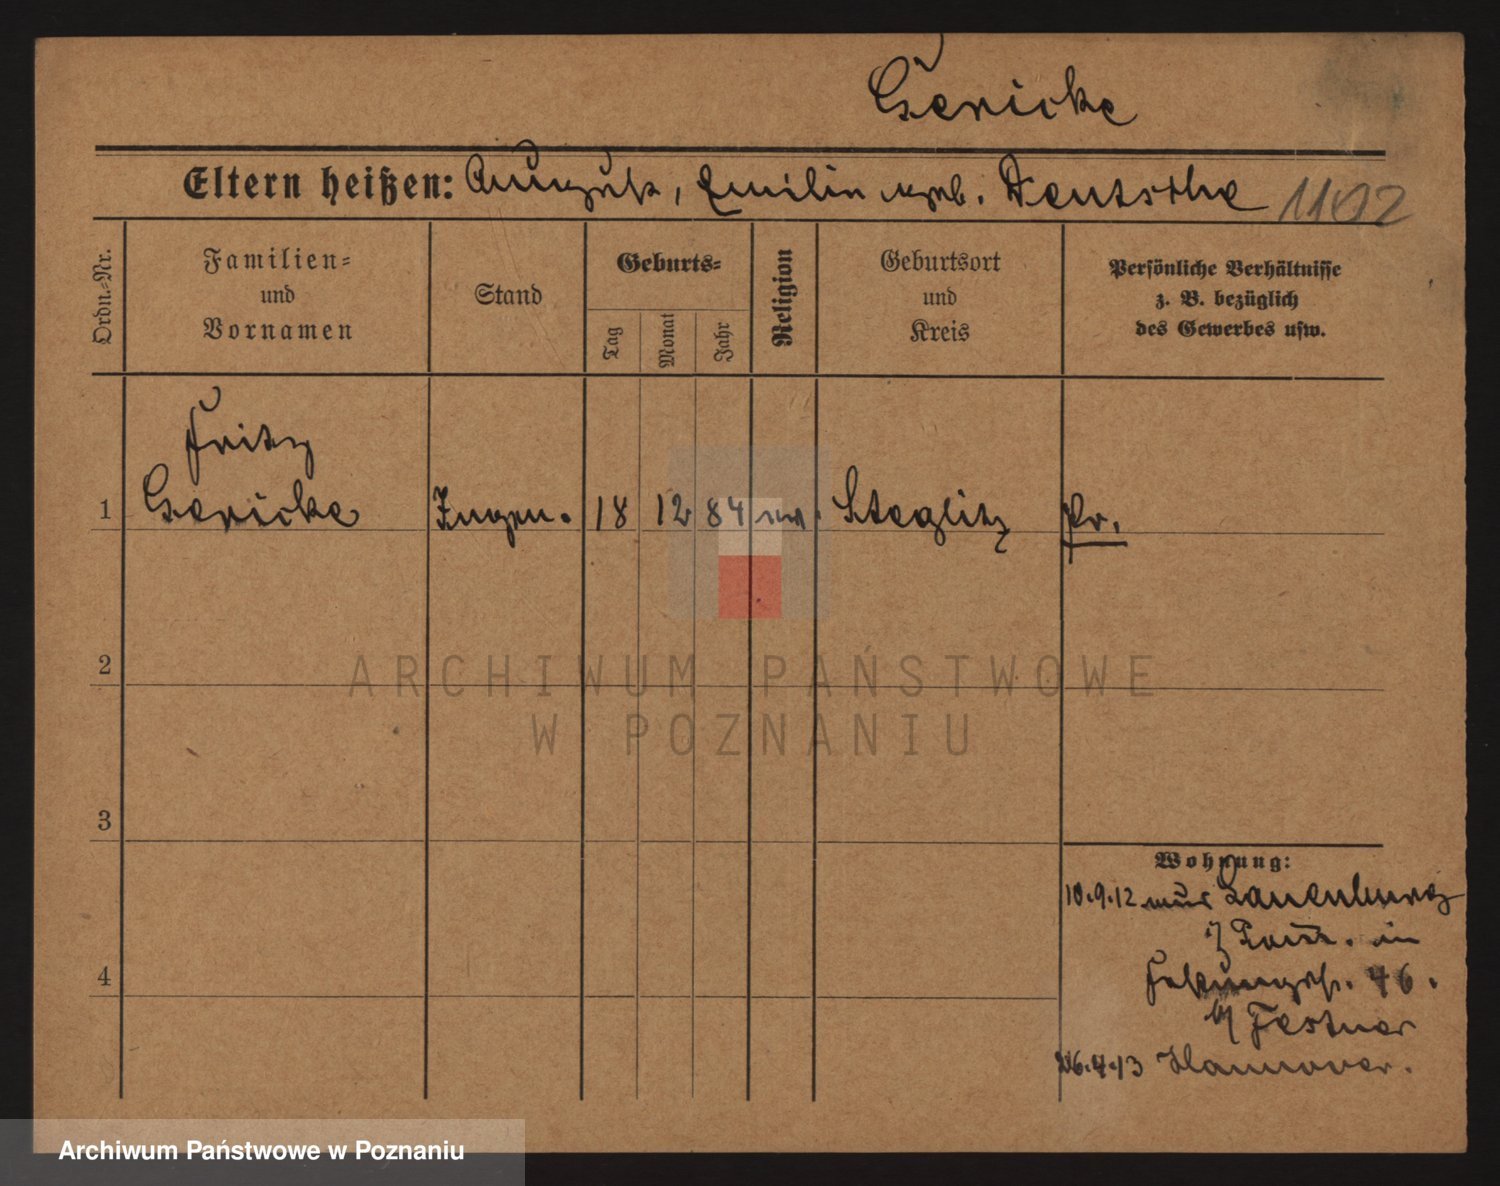 Gericke
Eltern heißen: August, Emilie geb. Deutsche 1102
Ordn.-Nr.
Familien-
und
Vornamen
Stand
Geburts-
Tag
Monat
Jahr
Religion
Geburtsort
und
Kreis
Persönliche Verhältnisse
z. B. bezüglich
des Gewerbes usw.
Fritz
1 Gericke Ingen. 18 12 84 Steglitz Pr.
2
ARCHIWUM PAŃSTWOWE
W POZNANIU
3
Wohnung:
10.9.12 Lauenburg
i/ Pom. in
46.
b/ Festner
4
26.4.13 Hannover.
Archiwum Państwowe w Poznaniu